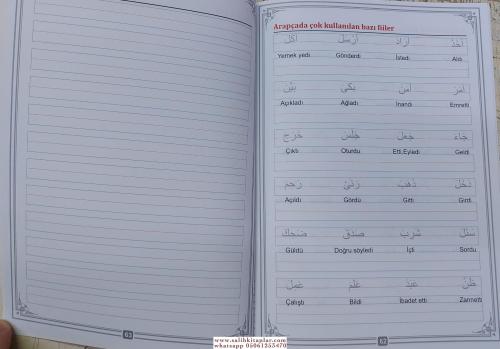 Arapçada çok kullanılan bazı fiiler
أَكَلَ أَرْسَلَ أَرَادَ أَخَذَ
Yemek yedi Gönderdi İstedi Aldı
بَيَّنَ بَكَى آمَنَ أَمَرَ
Açıkladı Ağladı İnandı Emretti
خَرَجَ جَلَسَ جَعَلَ جَاءَ
Çıktı Oturdu Etti,Eyledi Geldi
رَحِمَ ذَهَبَ دَخَلَ
Açıldı Gördü Gitti Girdi
ضَحِكَ صَدَقَ شَرِبَ سَئَلَ
Güldü Doğru söyledi İçti Sordu
عَمِلَ عَلِمَ عَبَدَ ظَنَّ
Çalıştı Bildi İbadet etti Zannetti
63
62
www.salihkitaplar.com
whatsapp 05061253470